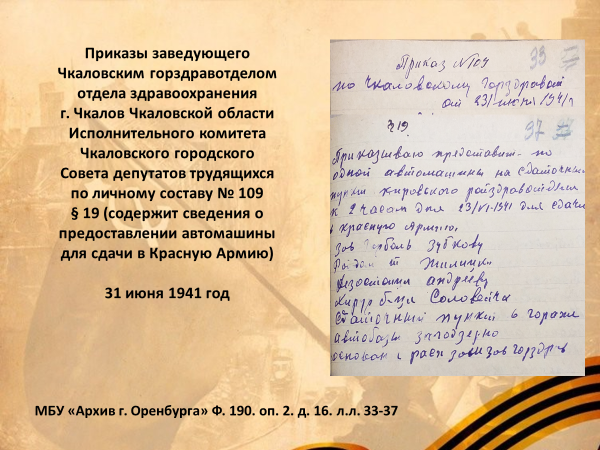 Приказы заведующего
Чкаловским горздравотделом
отдела здравоохранения
г. Чкалов Чкаловской области
Исполнительного комитета
Чкаловского городского
Совета депутатов трудящихся
по личному составу № 109
§ 19 (содержит сведения о
предоставлении автомашины
для сдачи в Красную Армию)
31 июня 1941 год
МБУ «Архив г. Оренбурга» Ф. 190. оп. 2. д. 16. л.л. 33-37
Приказ № 109 33
по Чкаловскому Горздравот
от 23/ июня 1941 г
§ 19 37
Приказываю представить по
одной автомашины на сдаточный
пункт кировского райздравотдела
к 2 часам дня 23/VI-1941 для сдачи
в красную Армию.
Зубкову
Жилин
Андрееву
Соловейчик
Сдаточный пункт в гараже
автобазы